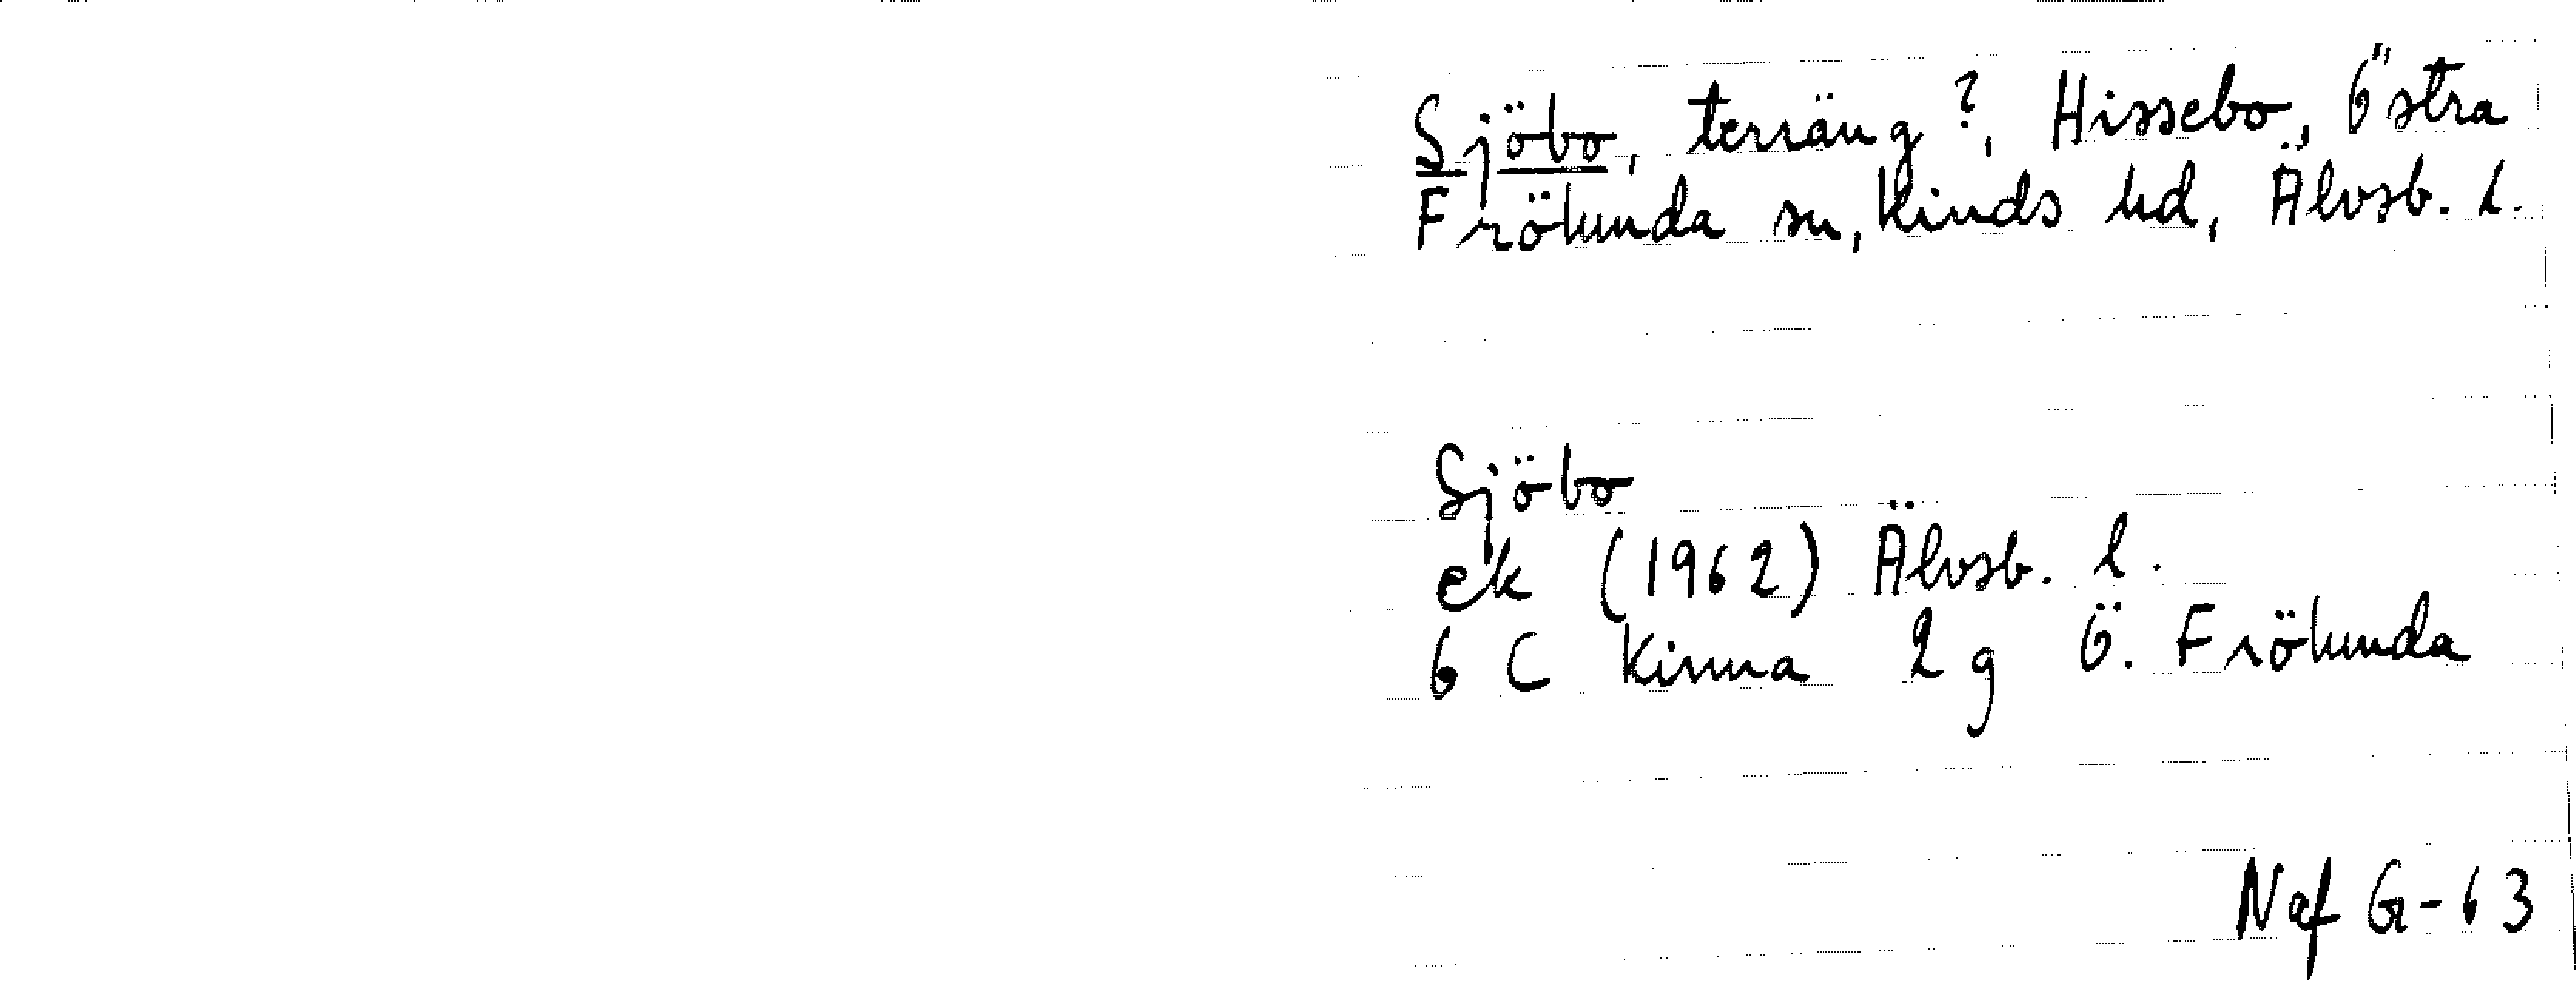 Sjöbo, terräng?, Hissebo, Östra
Frölunda sn, Kinds hd, Älvsb. l.
Sjöbo
ek (1962) Älvsb. l.
6 C Kinna 2 g Ö. Frölunda
Naf G-63